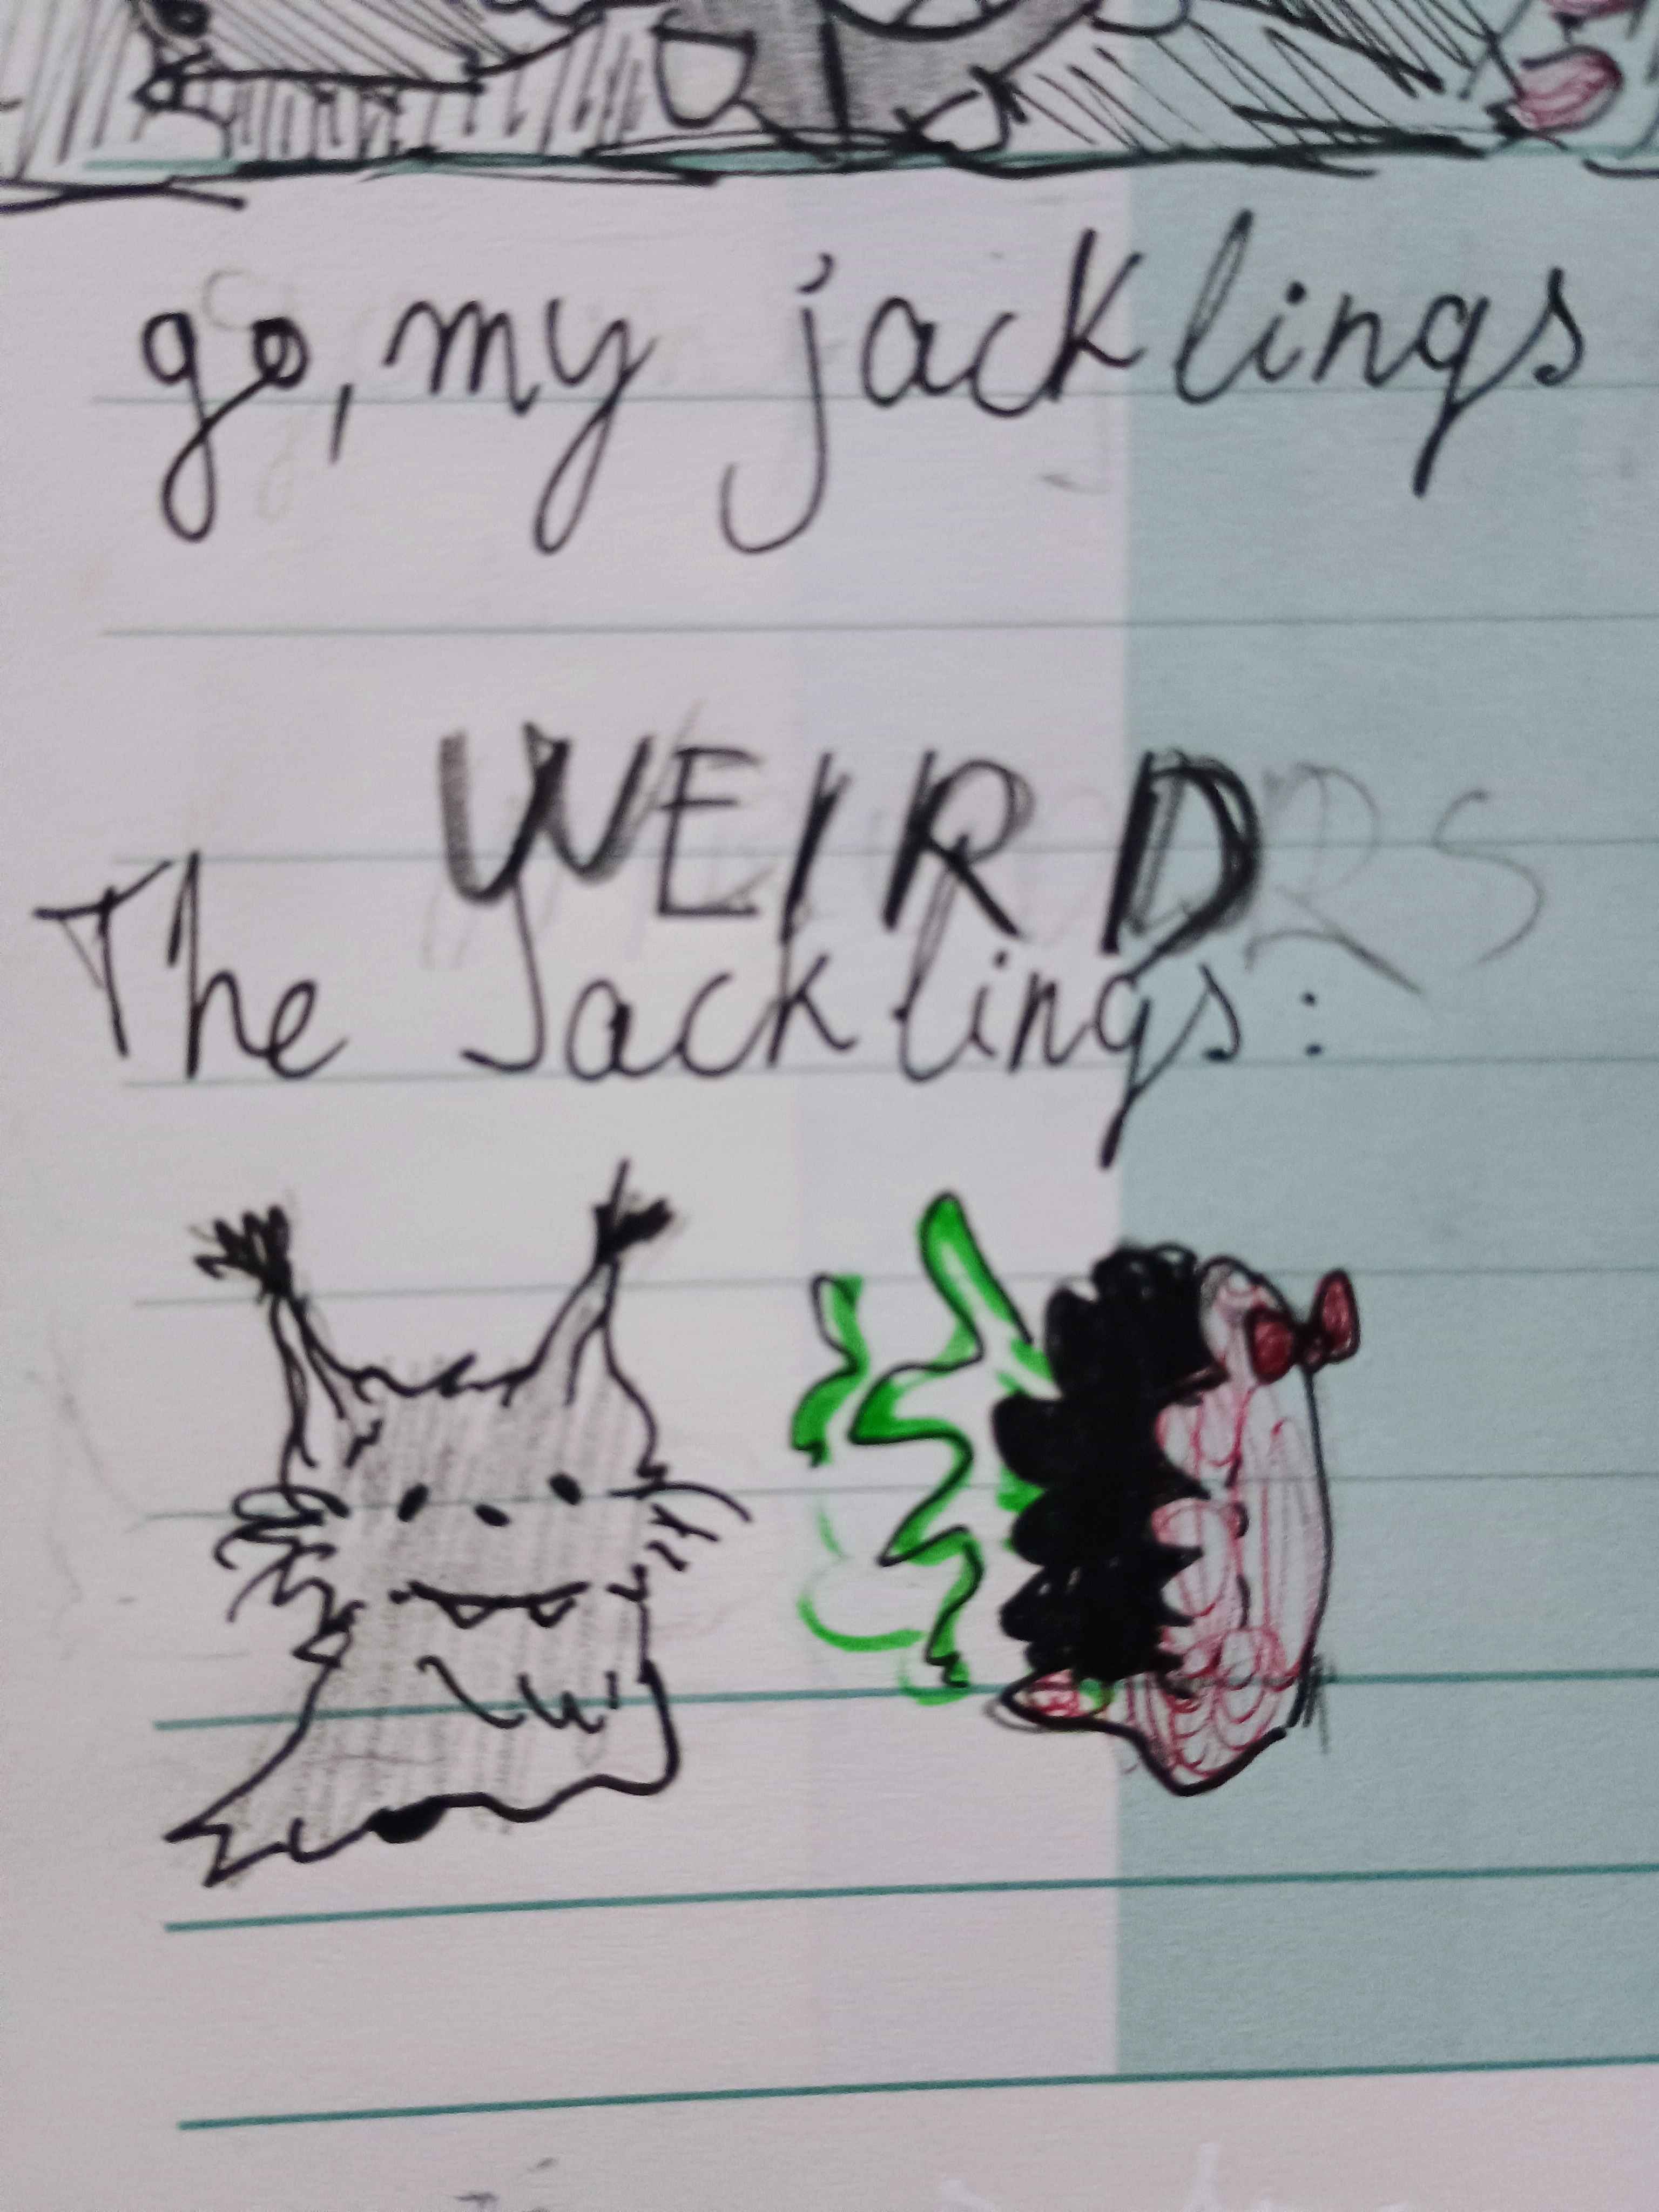 go, my jacklings
WEIRD
The Jacklings: